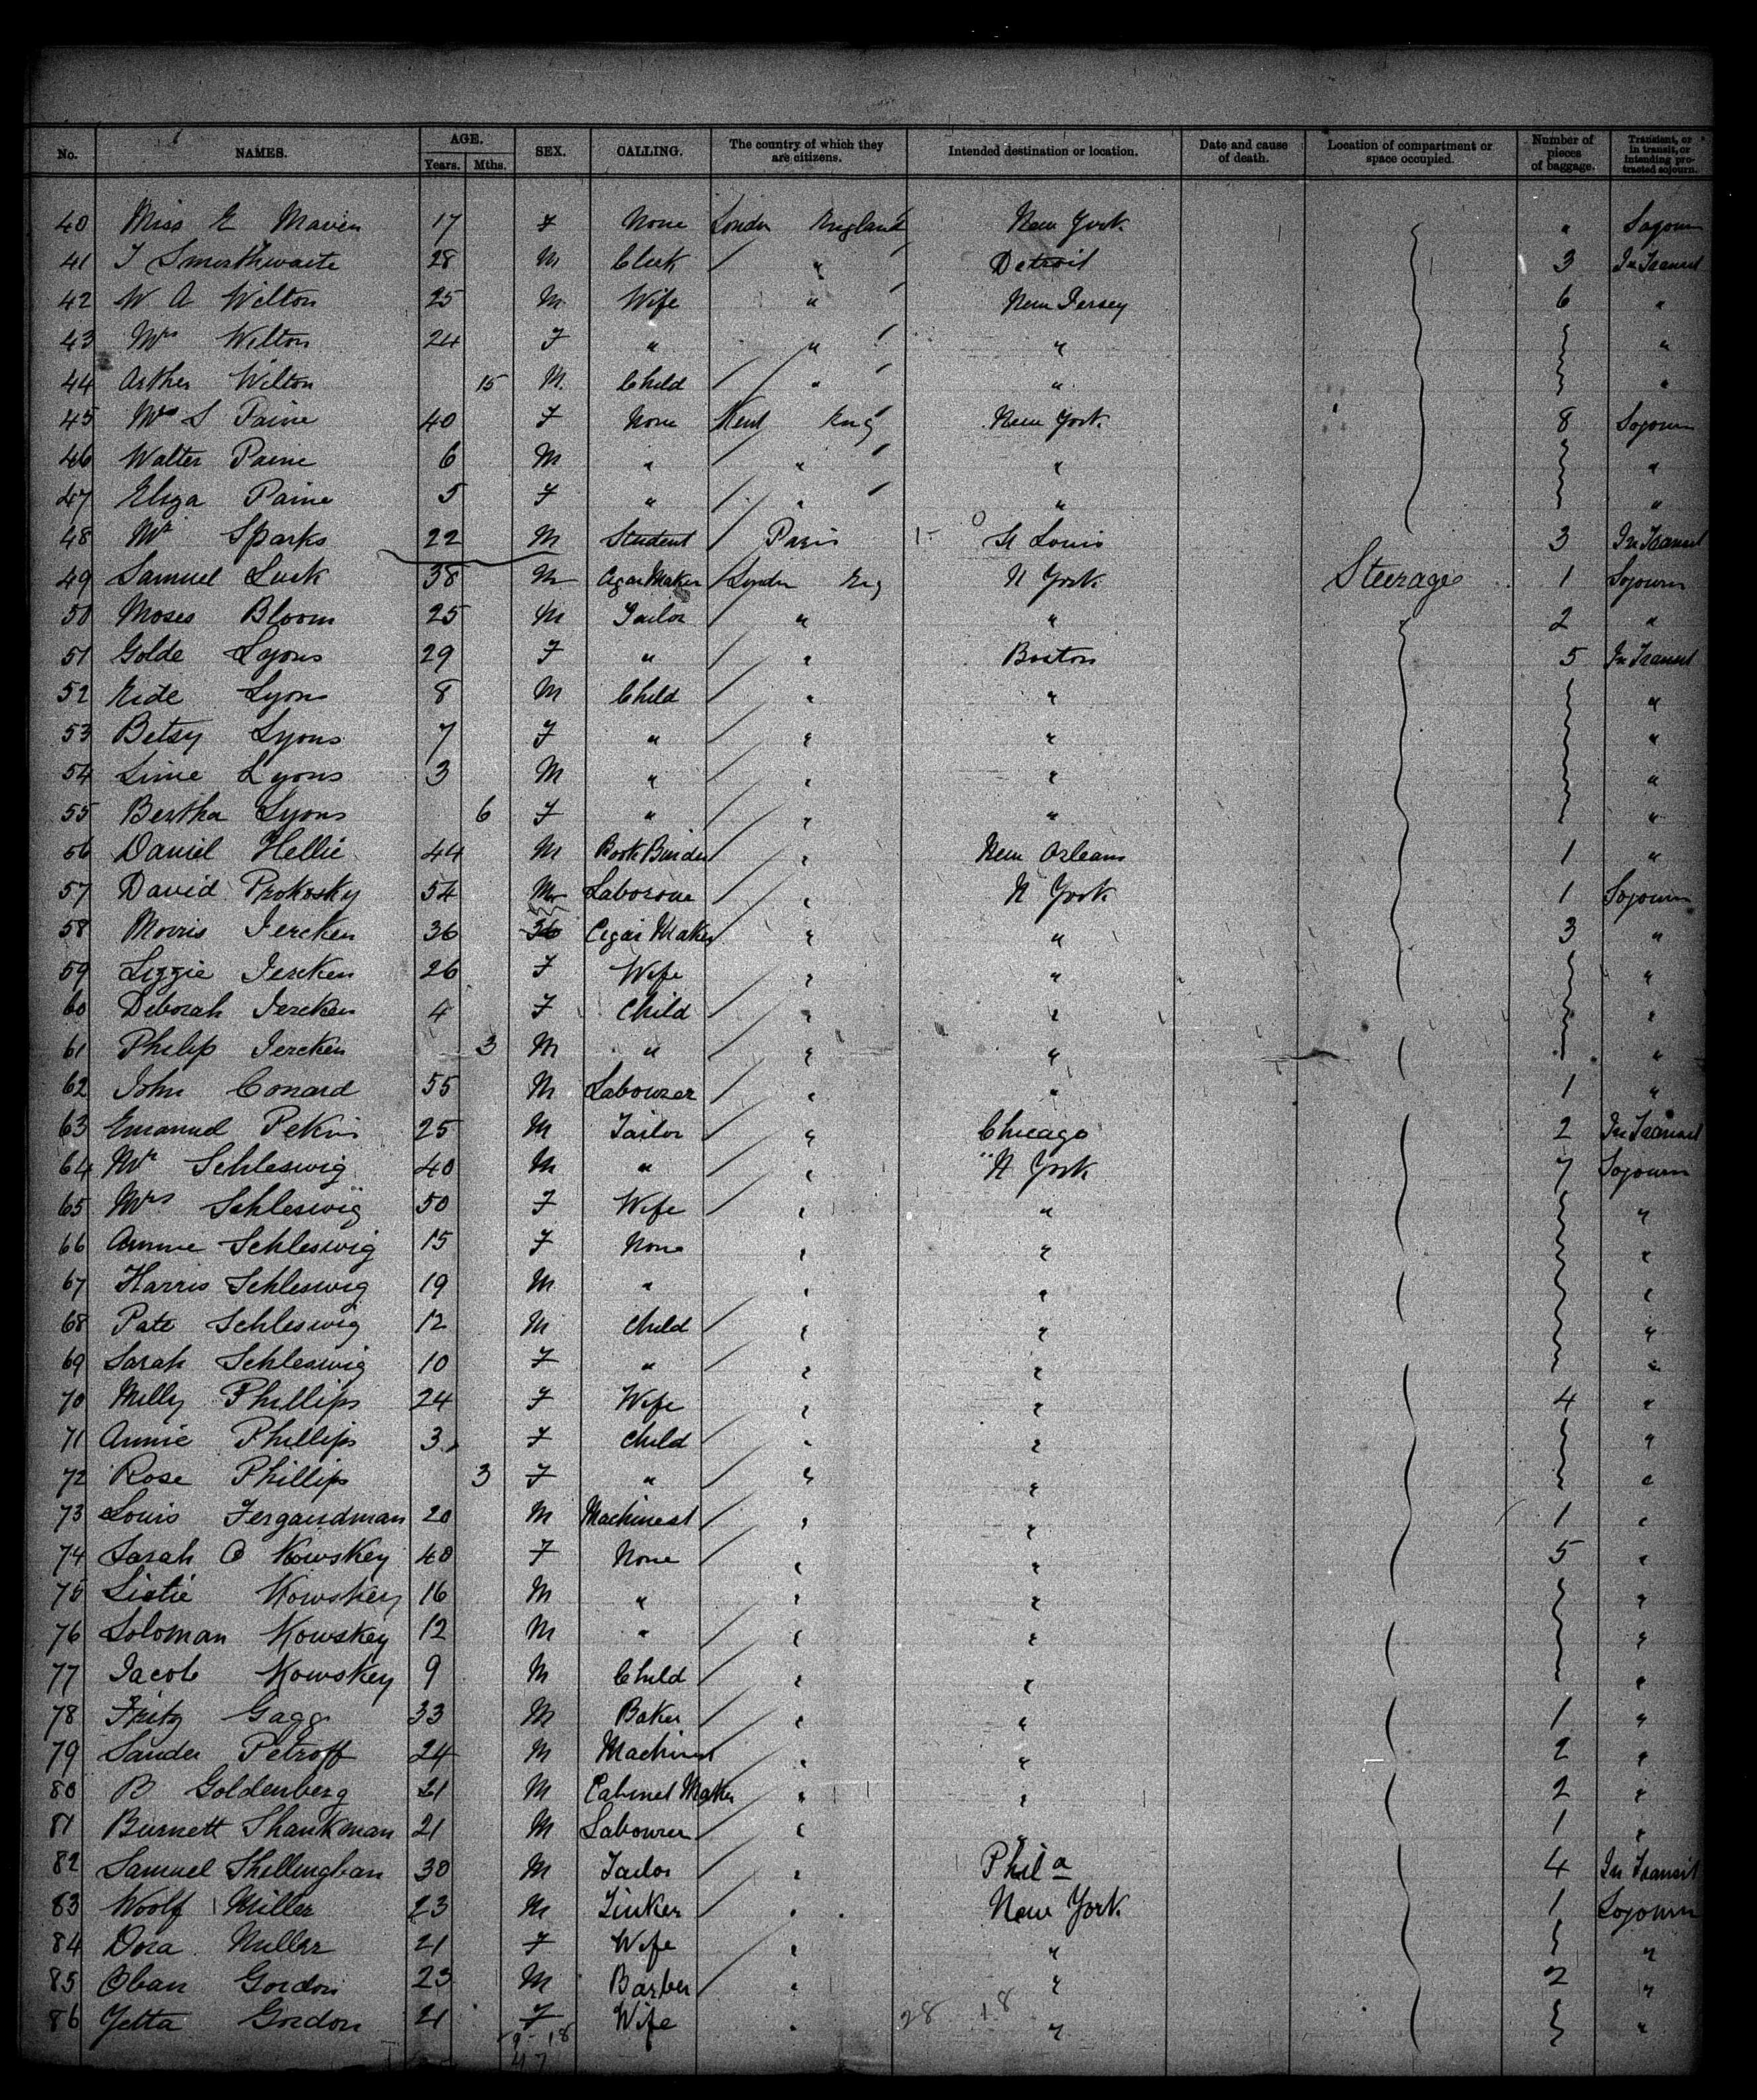 No. NAMES. AGE. Years. Mths. SEX. CALLING. The country of which they are citizens. Intended destination or location. Date and cause of death. Location of compartment or space occupied. Number of pieces of baggage. Transient, or in transit, or intending protracted sojourn.
40 Miss E Maven 17 F None London England New York " Sojourn
41 T Smorthwaite 28 M Clerk " Detroit 3 In Transit
42 W A Wilton 25 M Wife " New Jersey 6 "
43 Mrs Wilton 24 F " " " "
44 Arther Wilton 15 M. Child " " "
45 Mrs S Paine 40 F None Kent Eng New York 8 Sojourn
46 Walter Paine 6 M " " " "
47 Eliza Paine 5 F " " " "
48 Mr Sparks 22 M Student Paris St Louis 3 In Transit
49 Samuel Luck 38 M Cigar Maker London Eng N York Steerage 1 Sojourn
50 Moses Bloom 25 M Tailor " " 2 "
51 Golde Lyons 29 F " " Boston 5 In Transit
52 Eide Lyons 8 M Child " " "
53 Betsy Lyons 7 F " " " "
54 Lime Lyons 3 M " " " "
55 Bertha Lyons 6 F " " " "
56 Daniel Hellie 44 M Book Binder " New Orleans 1 "
57 David Prokosky 54 M Laborour " N York 1 Sojourn
58 Morris Jercken 36 36 Cigar Maker " " 3 "
59 Lizzie Jercken 26 F Wife " " "
60 Deborah Jercken 4 F Child " " "
61 Philip Jercken 3 M " " " "
62 John Conard 55 M Labourer " " 1 "
63 Emanuel Pekin 25 M Tailor " Chicago 2 In Transit
64 Mr Schleswig 40 M " " N York 7 Sojourn
65 Mrs Schleswig 50 F Wife " " "
66 Annie Schleswig 15 F None " " "
67 Harris Schleswig 19 M " " " "
68 Pate Schleswig 12 M Child " " "
69 Sarah Schleswig 10 F " " " "
70 Milly Phillips 24 F Wife " " 4 "
71 Annie Phillips 3 F Child " " "
72 Rose Phillips 3 F " " " "
73 Louis Fergaudman 20 M Machinest " " 1 "
74 Sarah O Kowskey 40 F None " " 5 "
75 Listie Kowskey 16 M " " " "
76 Soloman Kowskey 12 M " " " "
77 Jacob Kowskey 9 M Child " " "
78 Fritz Gagg 33 M Baker " " 1 "
79 Sander Petroff 24 M Machinist " " 2 "
80 B Goldenberg 21 M Cabinet Maker " " 2 "
81 Burnett Shankman 21 M Labourer " " 1 "
82 Samuel Shillingban 30 M Tailor " Phila 4 In Transit
83 Woolf Miller 23 M Tinker " New York 1 Sojourn
84 Dora Miller 21 F Wife " " "
85 Oban Gordon 23 M Barber " " 2 "
86 Yetta Gordon 21 F Wife " 28 18 " "
9-18
47